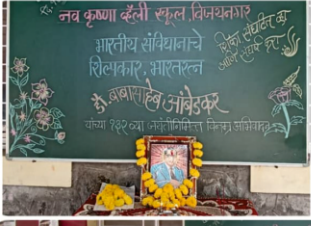 नव कृष्णा व्हॅली स्कूल, विजयनगर
भारतीय संविधानाचे
शिल्पकार, भारतरत्न
डॉ. बाबासाहेब आंबेडकर
यांच्या १३२ व्या जयंतीनिमित्त विनम्र अभिवादन
शिका संघटित व्हा
आणि संघर्ष करा